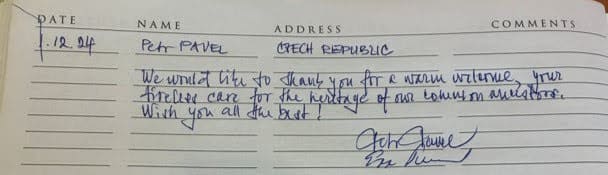 DATE NAME ADDRESS COMMENTS
1.12.24 Petr PAVEL CZECH REPUBLIC
We would like to thank you for a warm welcome, your
tireless care for the heritage of our common ancestors.
Wish you all the best!